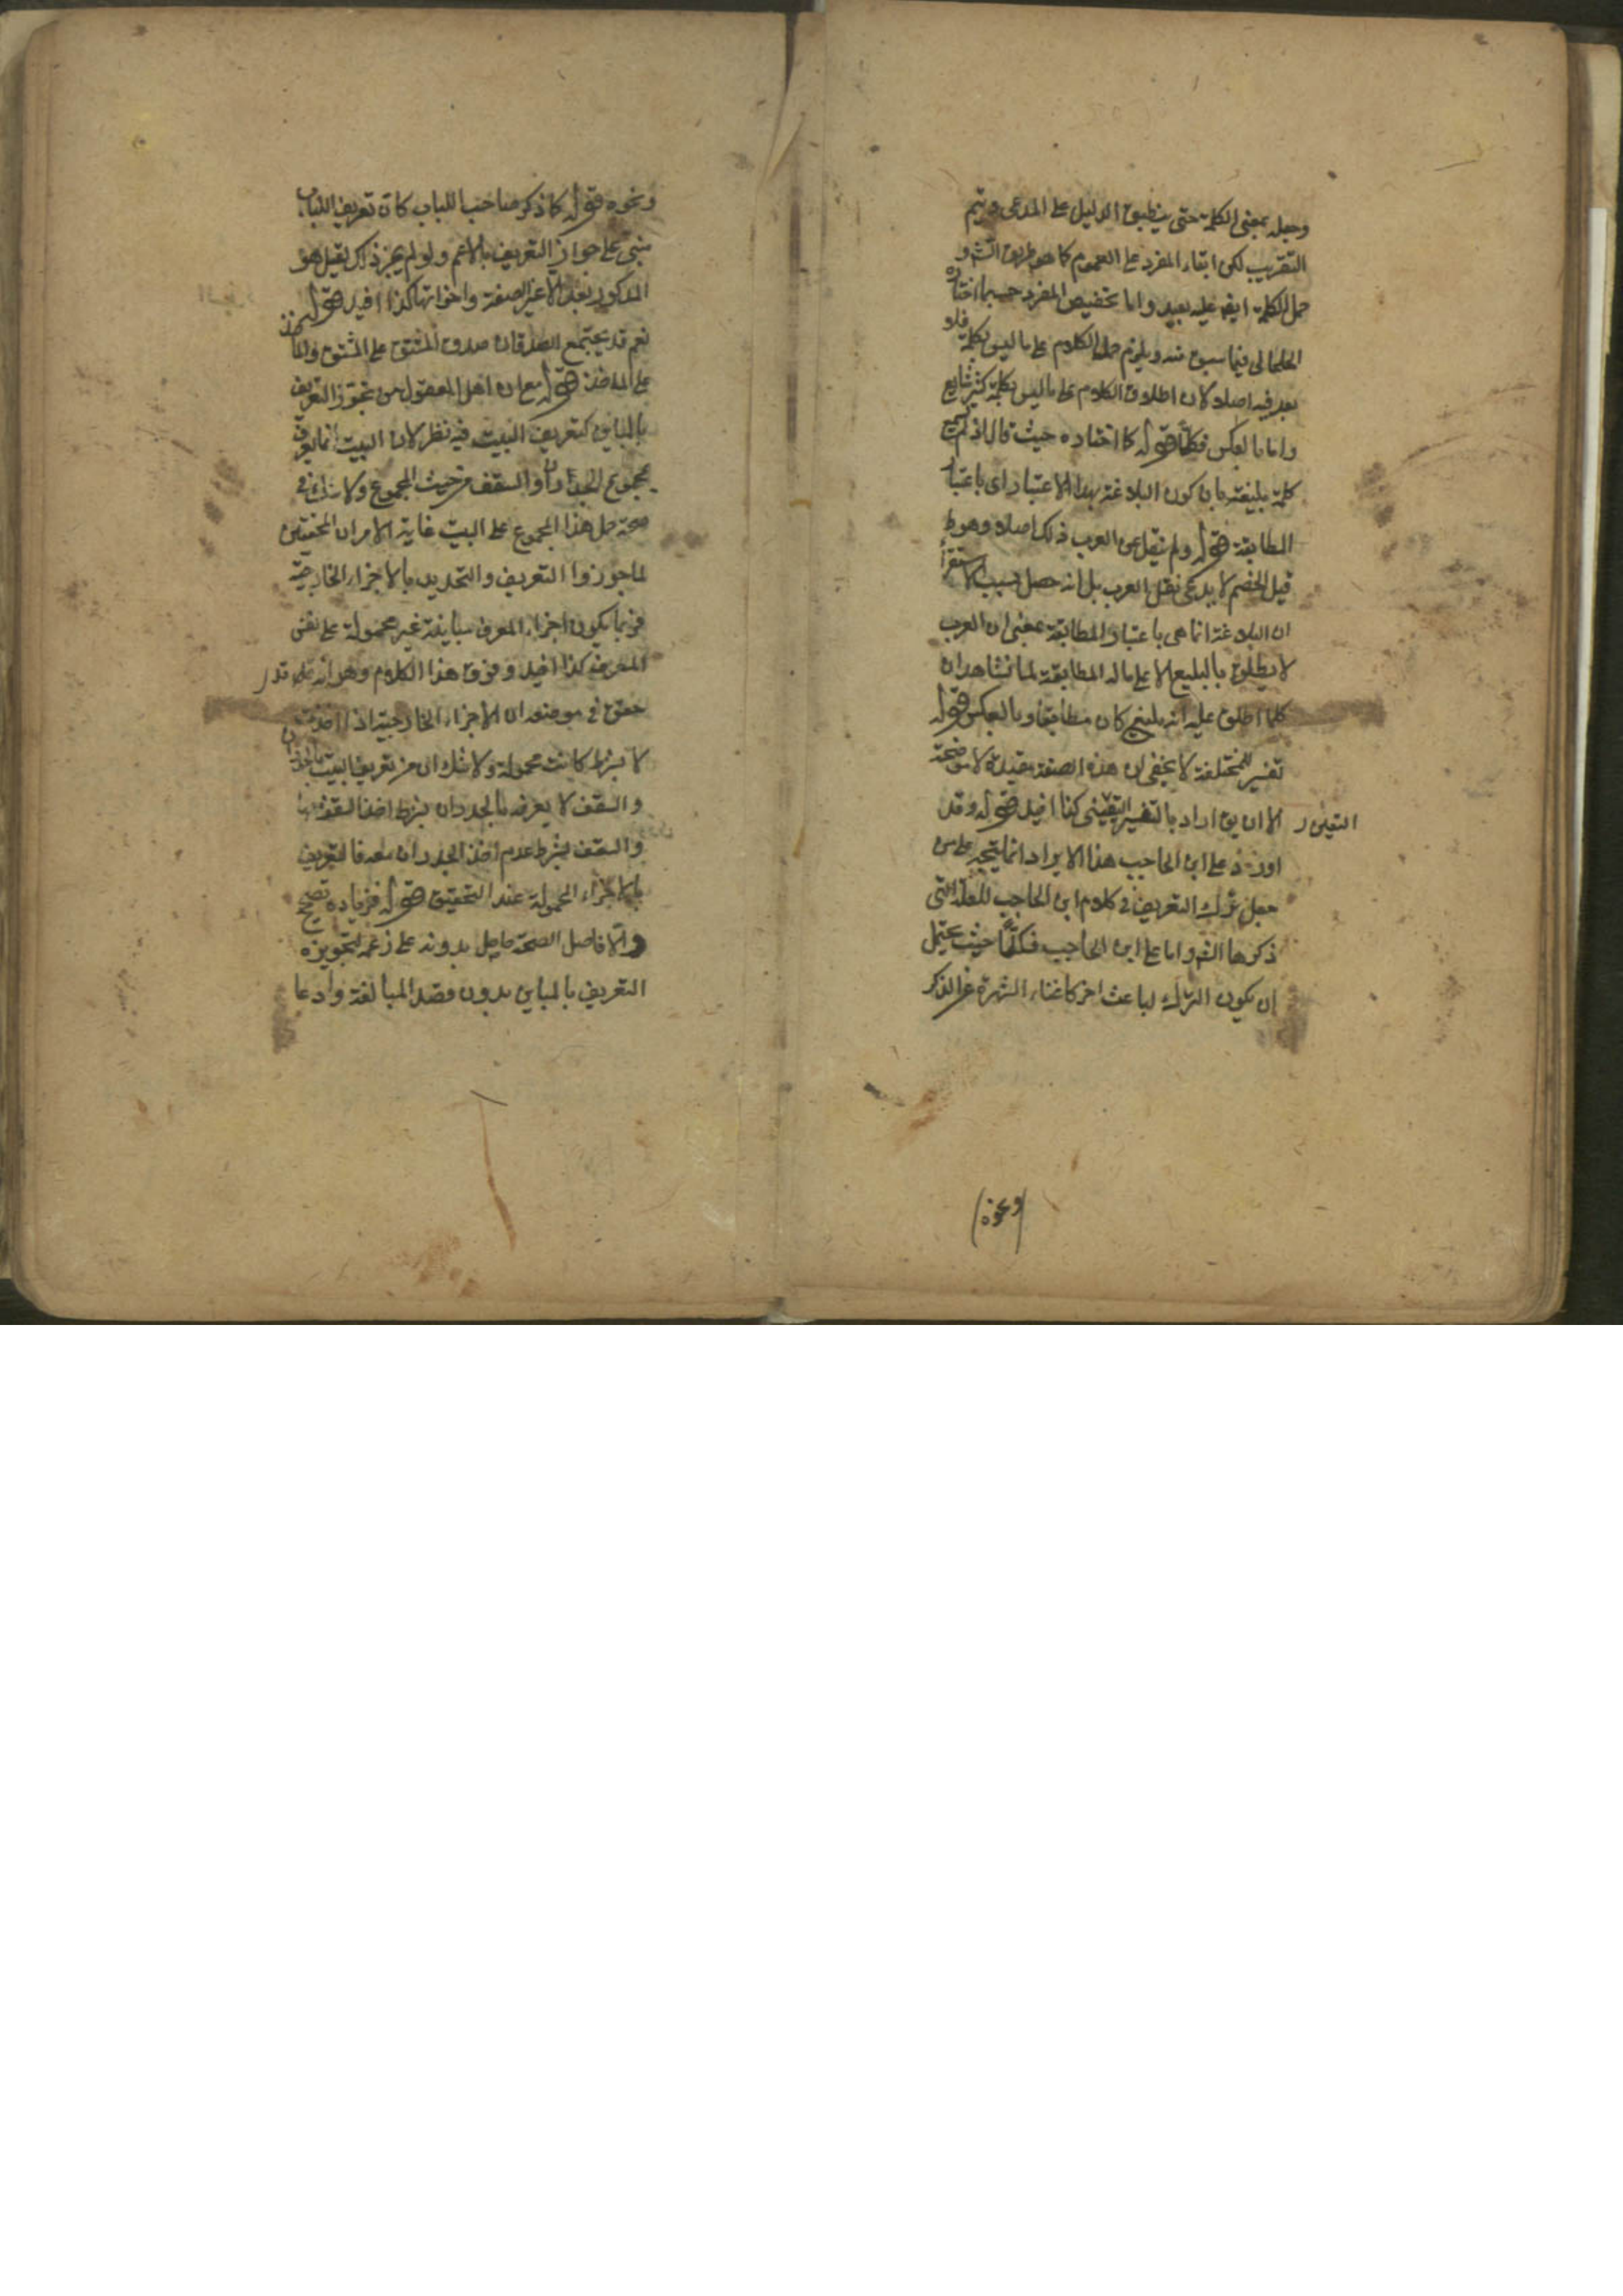 وجعله بمعنى الكلمة حتى ينطبق الدليل على المدعى ويتم
التقريب لكن ابقاء المفرد على العموم كما هو طريق الش و
حمل الكلمة ايض عليه بعيد واما تخصيص المفرد حسبما اختاره
الخلخالى فيما سبق منه ويلزم حمل الكلام على ما ليس بكلمة فلا
بعد فيه اصلا لان اطلاق الكلام على ما ليس بكلمة كثير شايع
واما بالعكس فكلا قوله كما اختاره حيث قال اذ لم يسمع
كلمة بليغة بان كون البلاغة بهذا الاعتبار اى باعتبار
المطابقة قوله ولم ينقل عن العرب ذلك اصلا وهو ظ
قيل الخصم لا يدعى نقل العرب بل انه حصل بسبب الاستقراء
ان البلاغة انما هى باعتبار المطابقة بمعنى ان العرب
لا يطلق بالبليغ الا على ما له المطابقة لما نشاهد ان
كلما اطلق عليه انه بليغ كان مطابقا وبالعكس قوله
تفسير للمختلفة لا يخفى ان هذه الصفة مقيدة لا موضحة
الا ان يق اراد بالتفسير التعيين كذا افيد قوله وقد
التعيين
اورد على ابن الحاجب هذا الايراد انما يتجه على من
جعل ترك التعريف فى كلام ابن الحاجب للعلة التى
ذكرها الش واما على ابن الحاجب فكلا حيث يحتمل
ان يكون الترك لباعث اخر كاغناء الشهرة عن الذكر
ونحوه
ونحوه قوله كما ذكر صاحب اللباب كان تعريف اللباب
مبنى على جواز التعريف بالاعم ولو لم يجز ذلك لقيل هو
المذكور بعد الا غير الصفة واخواتها كذا افيد قوله
نعم قد يجتمع الصدقان صدق المشتق على المشتق والماخذ
على الماخذ قوله مع ان اهل المعقول من يجوز التعريف
بالمباين كتعريف البيت فيه نظر لان البيت انما يعرف
بمجموع الجدران والسقف من حيث المجموع ولا شك فى
صحة حمل هذا المجموع على البيت غاية الامر ان المحققين
لما جوزوا التعريف والتحديد بالاجزاء الخارجية
فربما يكون اجزاء المعرف مباينة غير محمولة على نفس
المعرف كذا افيد وفوق هذا الكلام وهو انه قد
حقق فى موضعه ان الاجزاء الخارجية اذا اخذت
لا بشرط كانت محمولة ولا شك ان من تعريف البيت بالجدران
والسقف لا يعرفه بالجدران بشرط اخذ السقف
والسقف بشرط عدم اخذ الجدران معه فالتعريف
بالاجزاء المحمولة عند التحقيق قوله فزياده تصحيح
والا فاصل الصحة حاصل بدونه على زعمه لتجويزه
التعريف بالمباين بدون قصد المبالغة وادعا